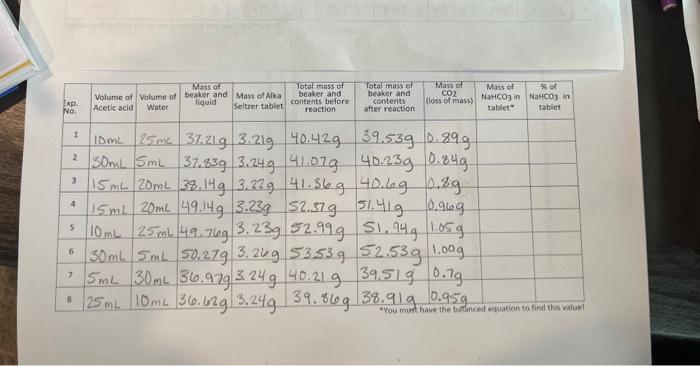 Exp. No. | Volume of Acetic acid | Volume of Water | Mass of beaker and liquid | Mass of Alka Seltzer tablet | Total mass of beaker and contents before reaction | Total mass of beaker and contents after reaction | Mass of CO2 (loss of mass) | Mass of NaHCO3 in tablet* | % of NaHCO3 in tablet
1 | 10mL | 25mL | 37.21g | 3.21g | 40.42g | 39.53g | 0.89g
2 | 30mL | 5mL | 37.83g | 3.24g | 41.07g | 40.23g | 0.84g
3 | 15mL | 20mL | 38.14g | 3.22g | 41.36g | 40.6g | 0.8g
4 | 15mL | 20mL | 49.14g | 3.23g | 52.37g | 51.41g | 0.96g
5 | 10mL | 25mL | 49.76g | 3.23g | 52.99g | 51.94g | 1.05g
6 | 30mL | 5mL | 50.27g | 3.26g | 53.53g | 52.53g | 1.00g
7 | 5mL | 30mL | 36.97g | 3.24g | 40.21g | 39.51g | 0.7g
8 | 25mL | 10mL | 36.62g | 3.24g | 39.86g | 38.91g | 0.95g
*You must have the balanced equation to find this value!